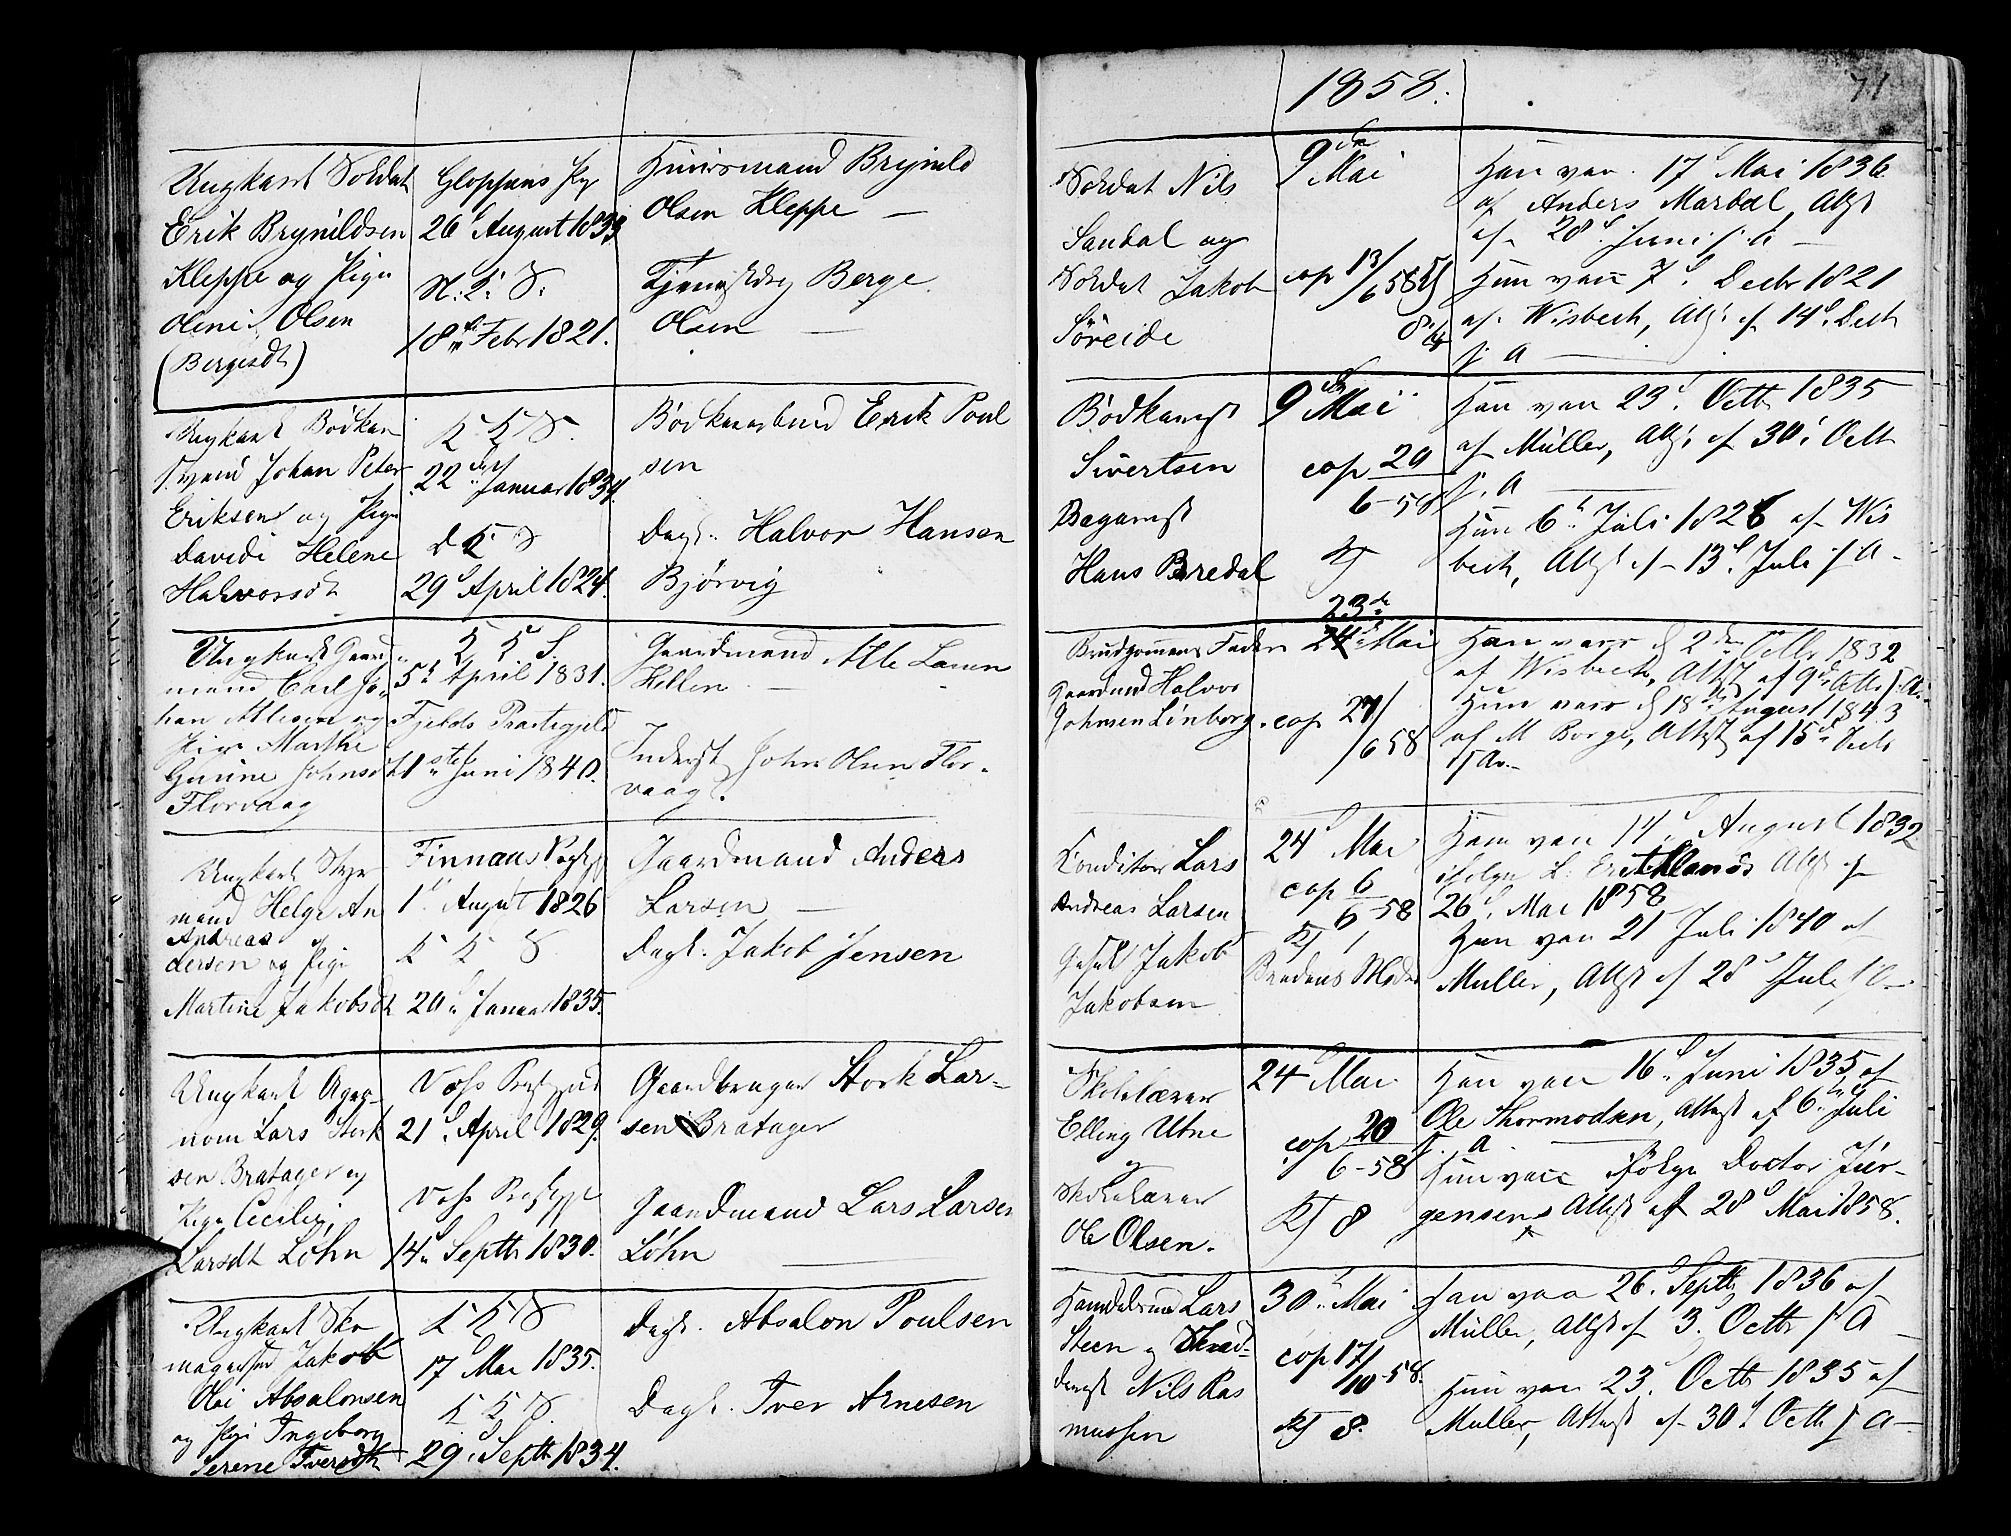 1858.
71
Ungkarl Soldat
Erik Brynildsen
Kleppe og Pige
Oline Olsen
(Bergesdt)
Gloppens Pg
26d August 1833
N: K: S:
18de Febr 1821.
Huusmand Brynild
Olsen Kleppe —
Tjenestedrg Berge
Olsen —
Soldat Nils
Sandal og
Soldat Jakob
Söreide
9de Mai
cop 13/6 58
8
Han vacc. 17d Mai 1836
af Anders Mardal, Attst
af 28d Juni s. A. —
Hun vacc 7d Decbr 1821
af Wisbech, Att. af 14d Decb
s. A —
Ungkarl Bödker
svend Johan Peter
Eriksen og Pige
Davidi Helene
Halvorsdt
K K S.
22de Januar 1834.
D K S
29d April 1824.
Bödkersvend Erik Poul
sen
Dagl. Halvor Hansen
Bjørvig
Bödkermst
Sivertsen
Bagermst
Hans Bredal
9de Mai
cop 20
6-58
Han vacc 23d Octb 1835
af Müller, Attst af 30d Octb
s. A —
Hun 6d Juli 1826 af Wis
bech, Attst af 13d Juli s A -
Ungkarl Gaard
mand Carl Jo-
han Atlesen og
Pige Marthe
Gurine Johnsdt
Florvaag
K K S.
5d April 1831.
Fjelds Præstegjeld
1ste Juni 1840.
Gaardmand Atle Larsen
Hillen —
Inderst John Olsen Flor-
vaag.
Brudgommens Fader
Gaardmd Halvor
Johnsen Linborg
23de
24d Mai
cop 27/
/6 58
Han vacc d 2den Octbr 1832
af Wisbech, Attst af 9d Octb s. A.
Hun vacc d 18de August 1843
af M Borge, Attst af 15de
s. A. —
Ungkarl Styr
mand Helge An
Andreas
dersen og Pige
Martine Jakobsdt
Finnaas Pgtgj
1d August 1826
K K S
20d Januar 1835.
Gaardmand Anders
Larsen —
Dagl. Jakob Jensen
Konditor Lars
Andreas Larsen
Jakob
Jakobsen
24d Mai
cop 6
6-58
Brudens Moder
Han vacc 14d August 1832
ifølge Attst af
26d Mai 1858
Hun vacc 21 Juli 1840 af
Müller, Attst af 28d Juli s A —
Ungkarl Agro-
nom Lars Stork
sen Bratager og
Pige Cecilie
Larsdt Löhn
Voss Prgjd
21d April 1829.
Voss Prgj
14d Septbr 1830.
Gaardbruger Stork Lar-
sen Bratager
Gaardmand Lars Larsen
Löhn —
Skolelærer
Elling Utne
og
Skolelærer
Ole Olsen.
24d Mai
cop 20
6-58
8
Han vacc 16d Juni 1835 af
Ole Thormodsen, Attest af 6te Juli
s. A —
Hun vacc ifölge Doctor Jür-
gensens Attst af 28d Mai 1858.
Ungkarl Sko
magersvd Jakob
Olai Absalonsen
og Pige Ingeborg
Serene Iversdt
K K S
17d Mai 1835.
K K S.
29d Septbr 1834.
Dagl. Absalon Poulsen
Dagl. Iver Arnesen
Handelsmd Lars
Steen og Skræd-
dermst Nils Ras
mussen
30d Mai
cop 17/
/10-58.
8.
Han vacc 26d Septb 1836 af
Müller, Attst af 3d Octb s A —
Hun vacc 23d Octb 1835 af
Müller, Attest af 30d Octb s A —